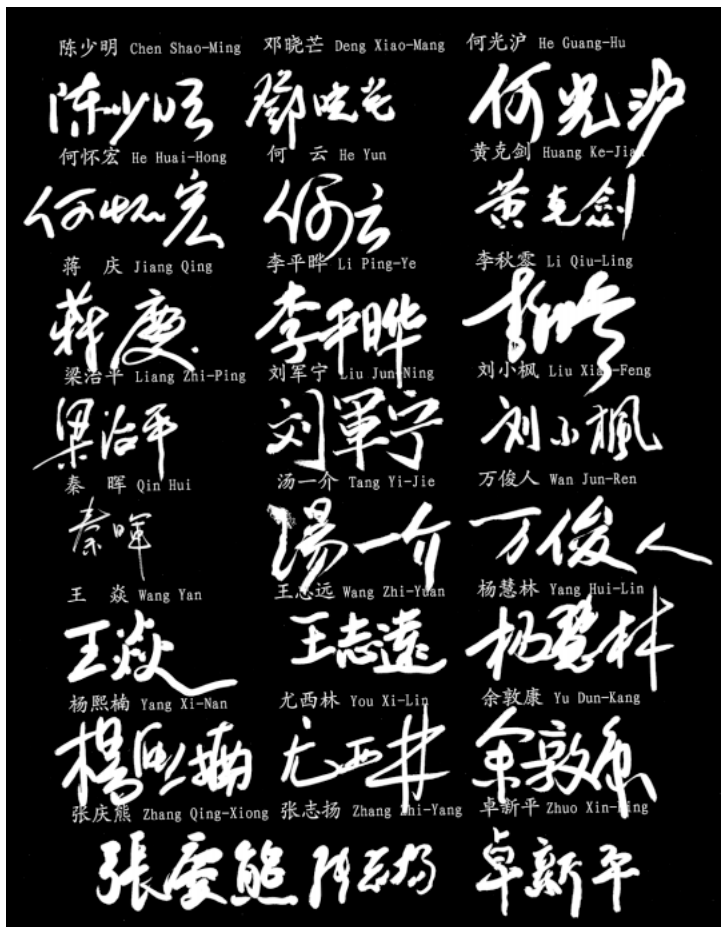 陈少明 Chen Shao-Ming 邓晓芒 Deng Xiao-Mang 何光沪 He Guang-Hu
陈少明 鄧晓芒 何光沪
何怀宏 He Huai-Hong 何 云 He Yun 黄克剑 Huang Ke-Jian
何怀宏 何云 黄克剑
蒋 庆 Jiang Qing 李平晔 Li Ping-Ye 李秋零 Li Qiu-Ling
蒋慶 李平晔 李秋零
梁治平 Liang Zhi-Ping 刘军宁 Liu Jun-Ning 刘小枫 Liu Xiao-Feng
梁治平 刘軍宁 刘小楓
秦 晖 Qin Hui 汤一介 Tang Yi-Jie 万俊人 Wan Jun-Ren
秦晖 湯一介 万俊人
王 焱 Wang Yan 王志远 Wang Zhi-Yuan 杨慧林 Yang Hui-Lin
王焱 王志遠 杨慧林
杨熙楠 Yang Xi-Nan 尤西林 You Xi-Lin 余敦康 Yu Dun-Kang
楊熙楠 尤西林 余敦康
张庆熊 Zhang Qing-Xiong 张志扬 Zhang Zhi-Yang 卓新平 Zhuo Xin-Ping
張慶熊 张志扬 卓新平